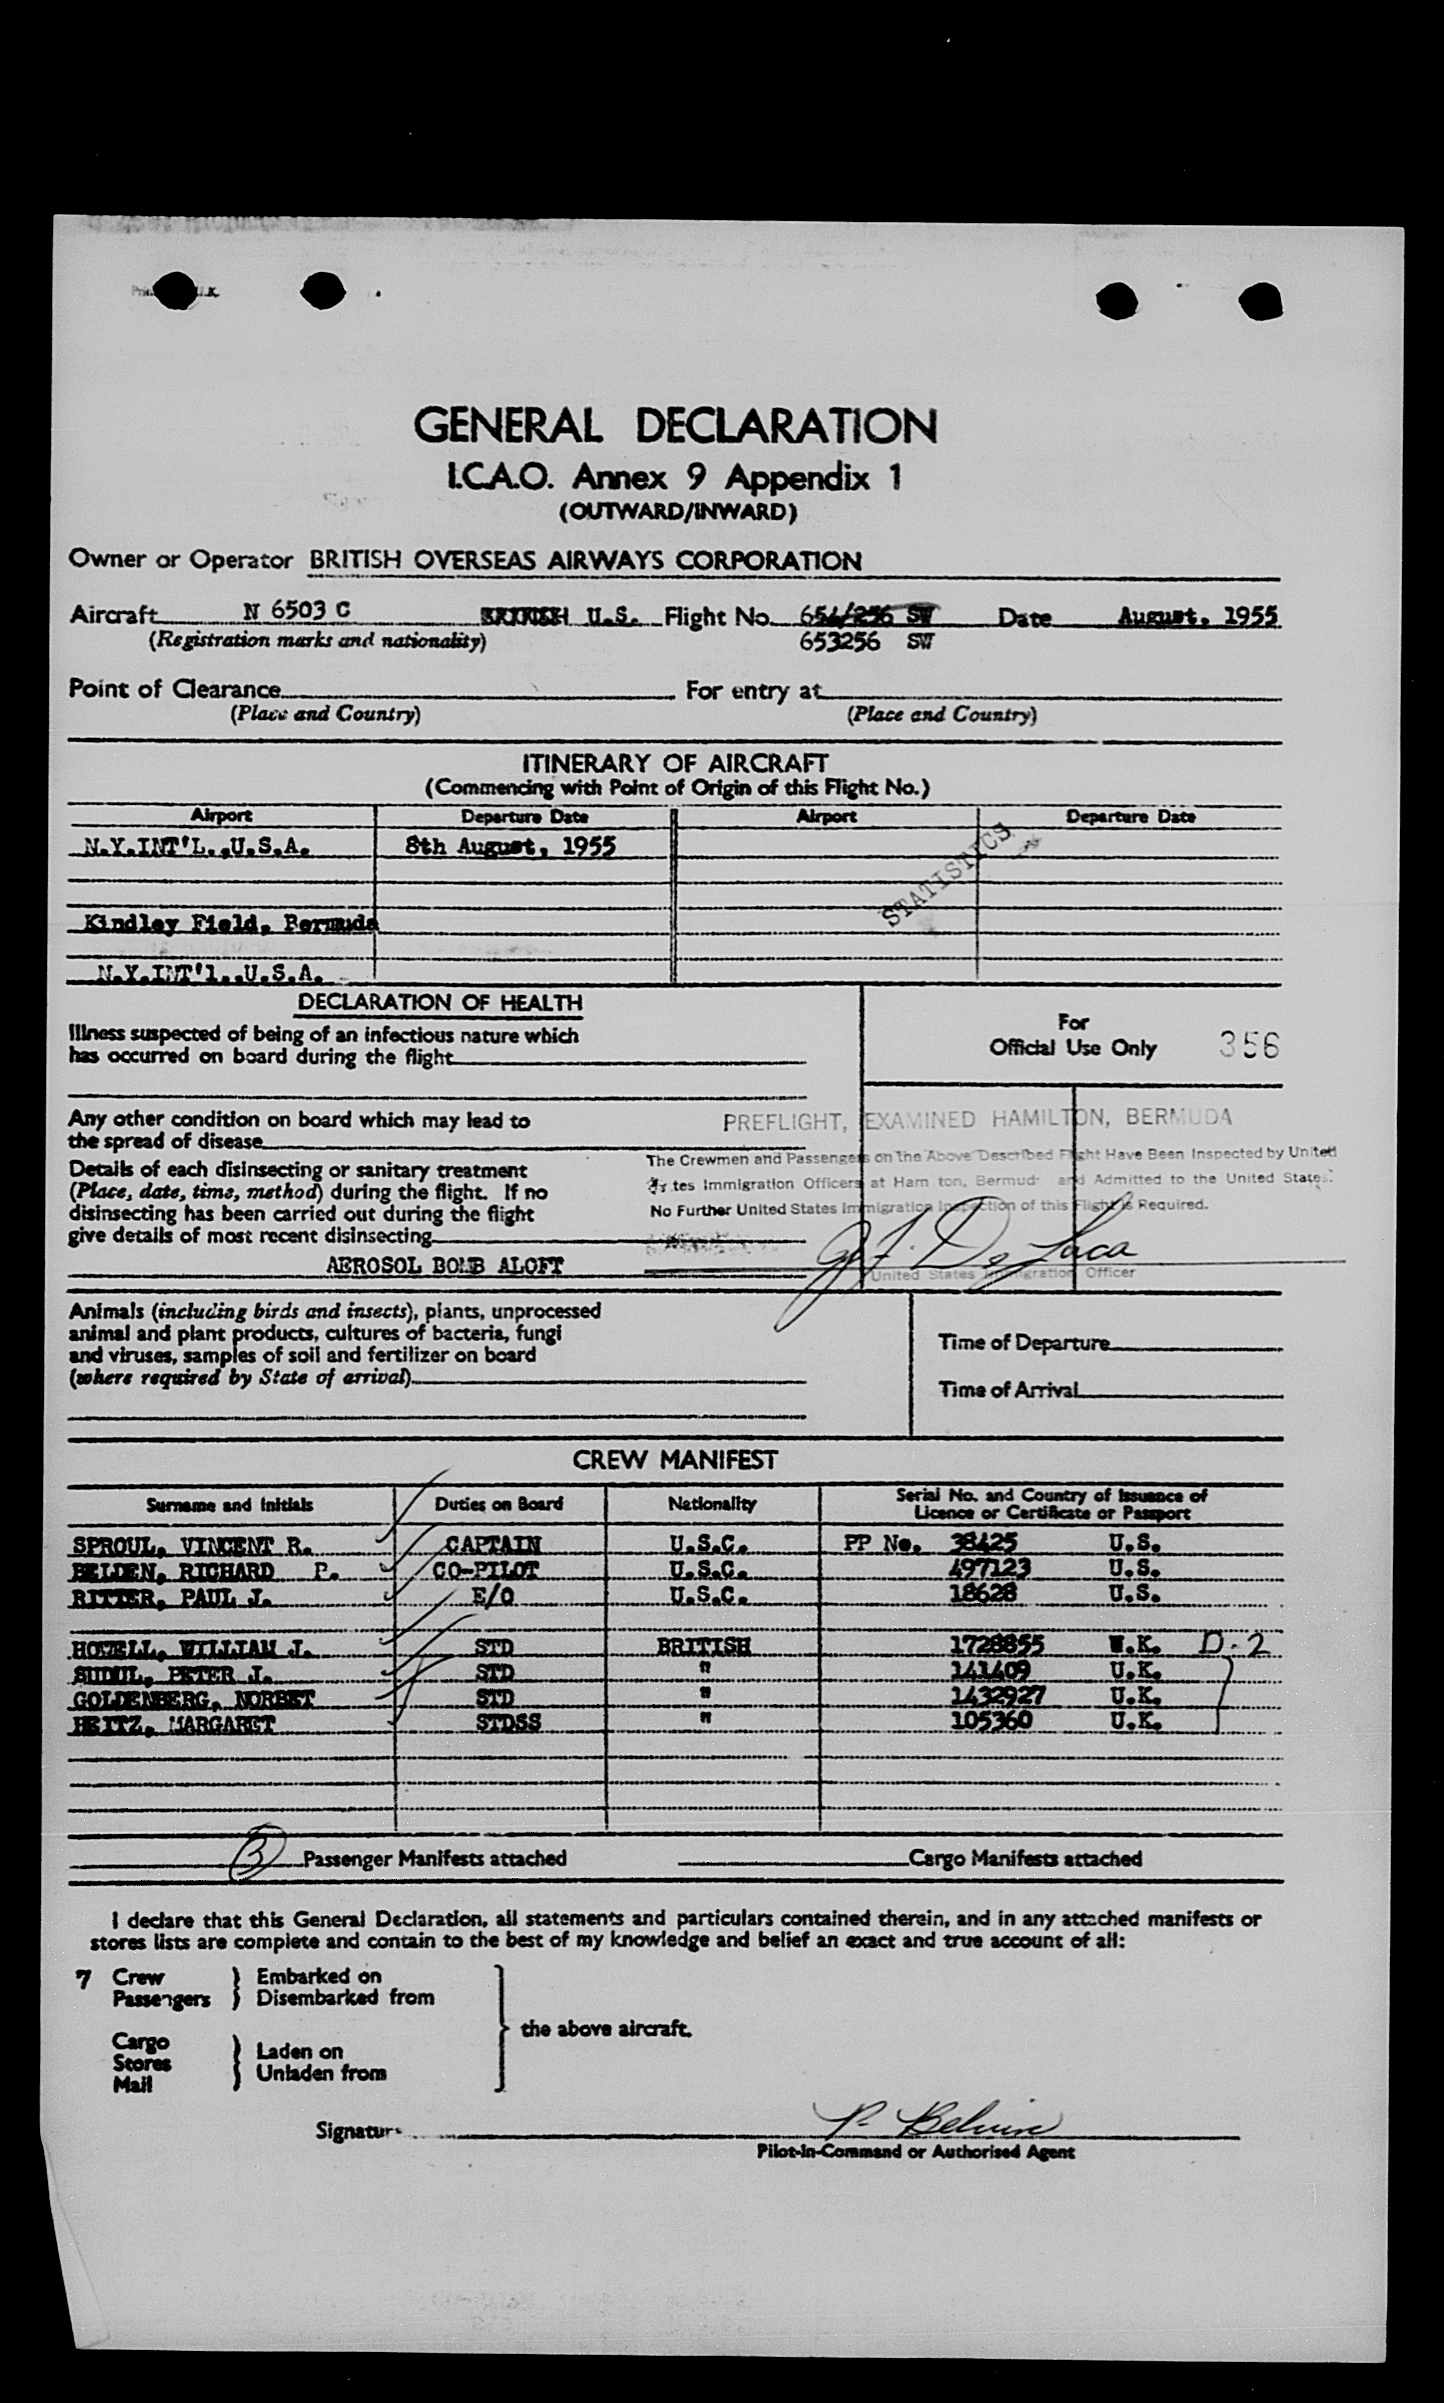 GENERAL DECLARATION
I.C.A.O. Annex 9 Appendix 1
(OUTWARD/INWARD)
Owner or Operator BRITISH OVERSEAS AIRWAYS CORPORATION
Aircraft N 6503 C BRITISH U.S. Flight No. 654/256 SW Date August, 1955
(Registration marks and nationality) 653256 SW
Point of Clearance For entry at
(Place and Country) (Place and Country)
ITINERARY OF AIRCRAFT
(Commencing with Point of Origin of this Flight No.)
Airport Departure Date Airport Departure Date
N.Y.INT'L.,U.S.A. 8th August, 1955
STATISTICS
Kindley Field, Bermuda
N.Y.INT'l.,U.S.A.
DECLARATION OF HEALTH
Illness suspected of being of an infectious nature which
has occurred on board during the flight
For
Official Use Only 356
Any other condition on board which may lead to
the spread of disease
PREFLIGHT, EXAMINED HAMILTON, BERMUDA
The Crewmen and Passengers on the Above Described Flight Have Been Inspected by United
tes Immigration Officers at Ham ton, Bermud and Admitted to the United States.
No Further United States Immigration Inspection of this Flight is Required.
United States Immigration Officer
Details of each disinsecting or sanitary treatment
(Place, date, time, method) during the flight. If no
disinsecting has been carried out during the flight
give details of most recent disinsecting
AEROSOL BOMB ALOFT
Animals (including birds and insects), plants, unprocessed
animal and plant products, cultures of bacteria, fungi
and viruses, samples of soil and fertilizer on board
(where required by State of arrival)
Time of Departure
Time of Arrival
CREW MANIFEST
Surname and Initials Duties on Board Nationality Serial No. and Country of Issuance of
Licence or Certificate or Passport
SPROUL, VINCENT R. CAPTAIN U.S.C. PP No. 38425 U.S.
BELDEN, RICHARD P. CO-PILOT U.S.C. 497123 U.S.
RITTER, PAUL J. E/O U.S.C. 18628 U.S.
HOWELL, WILLIAM J. STD BRITISH 1728855 U.K. D-2
SUDUL, PETER J. STD " 141409 U.K.
GOLDENBERG, NORBET STD " 1432927 U.K.
REITZ, MARGARET STDSS " 105360 U.K.
3 Passenger Manifests attached Cargo Manifests attached
I declare that this General Declaration, all statements and particulars contained therein, and in any attached manifests or
stores lists are complete and contain to the best of my knowledge and belief an exact and true account of all:
7 Crew } Embarked on
Passengers } Disembarked from
the above aircraft.
Cargo
Stores } Laden on
Mail } Unladen from
Signature
Pilot-in-Command or Authorised Agent